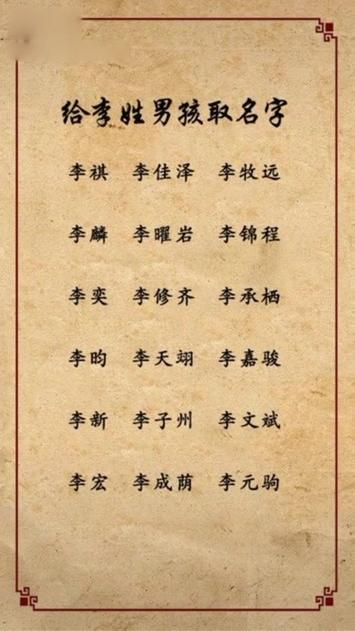 给李姓男孩取名字
李祺 李佳泽 李牧远
李麟 李曜岩 李锦程
李奕 李修齐 李承栖
李昀 李天翊 李嘉骏
李新 李子州 李文斌
李宏 李成荫 李元驹